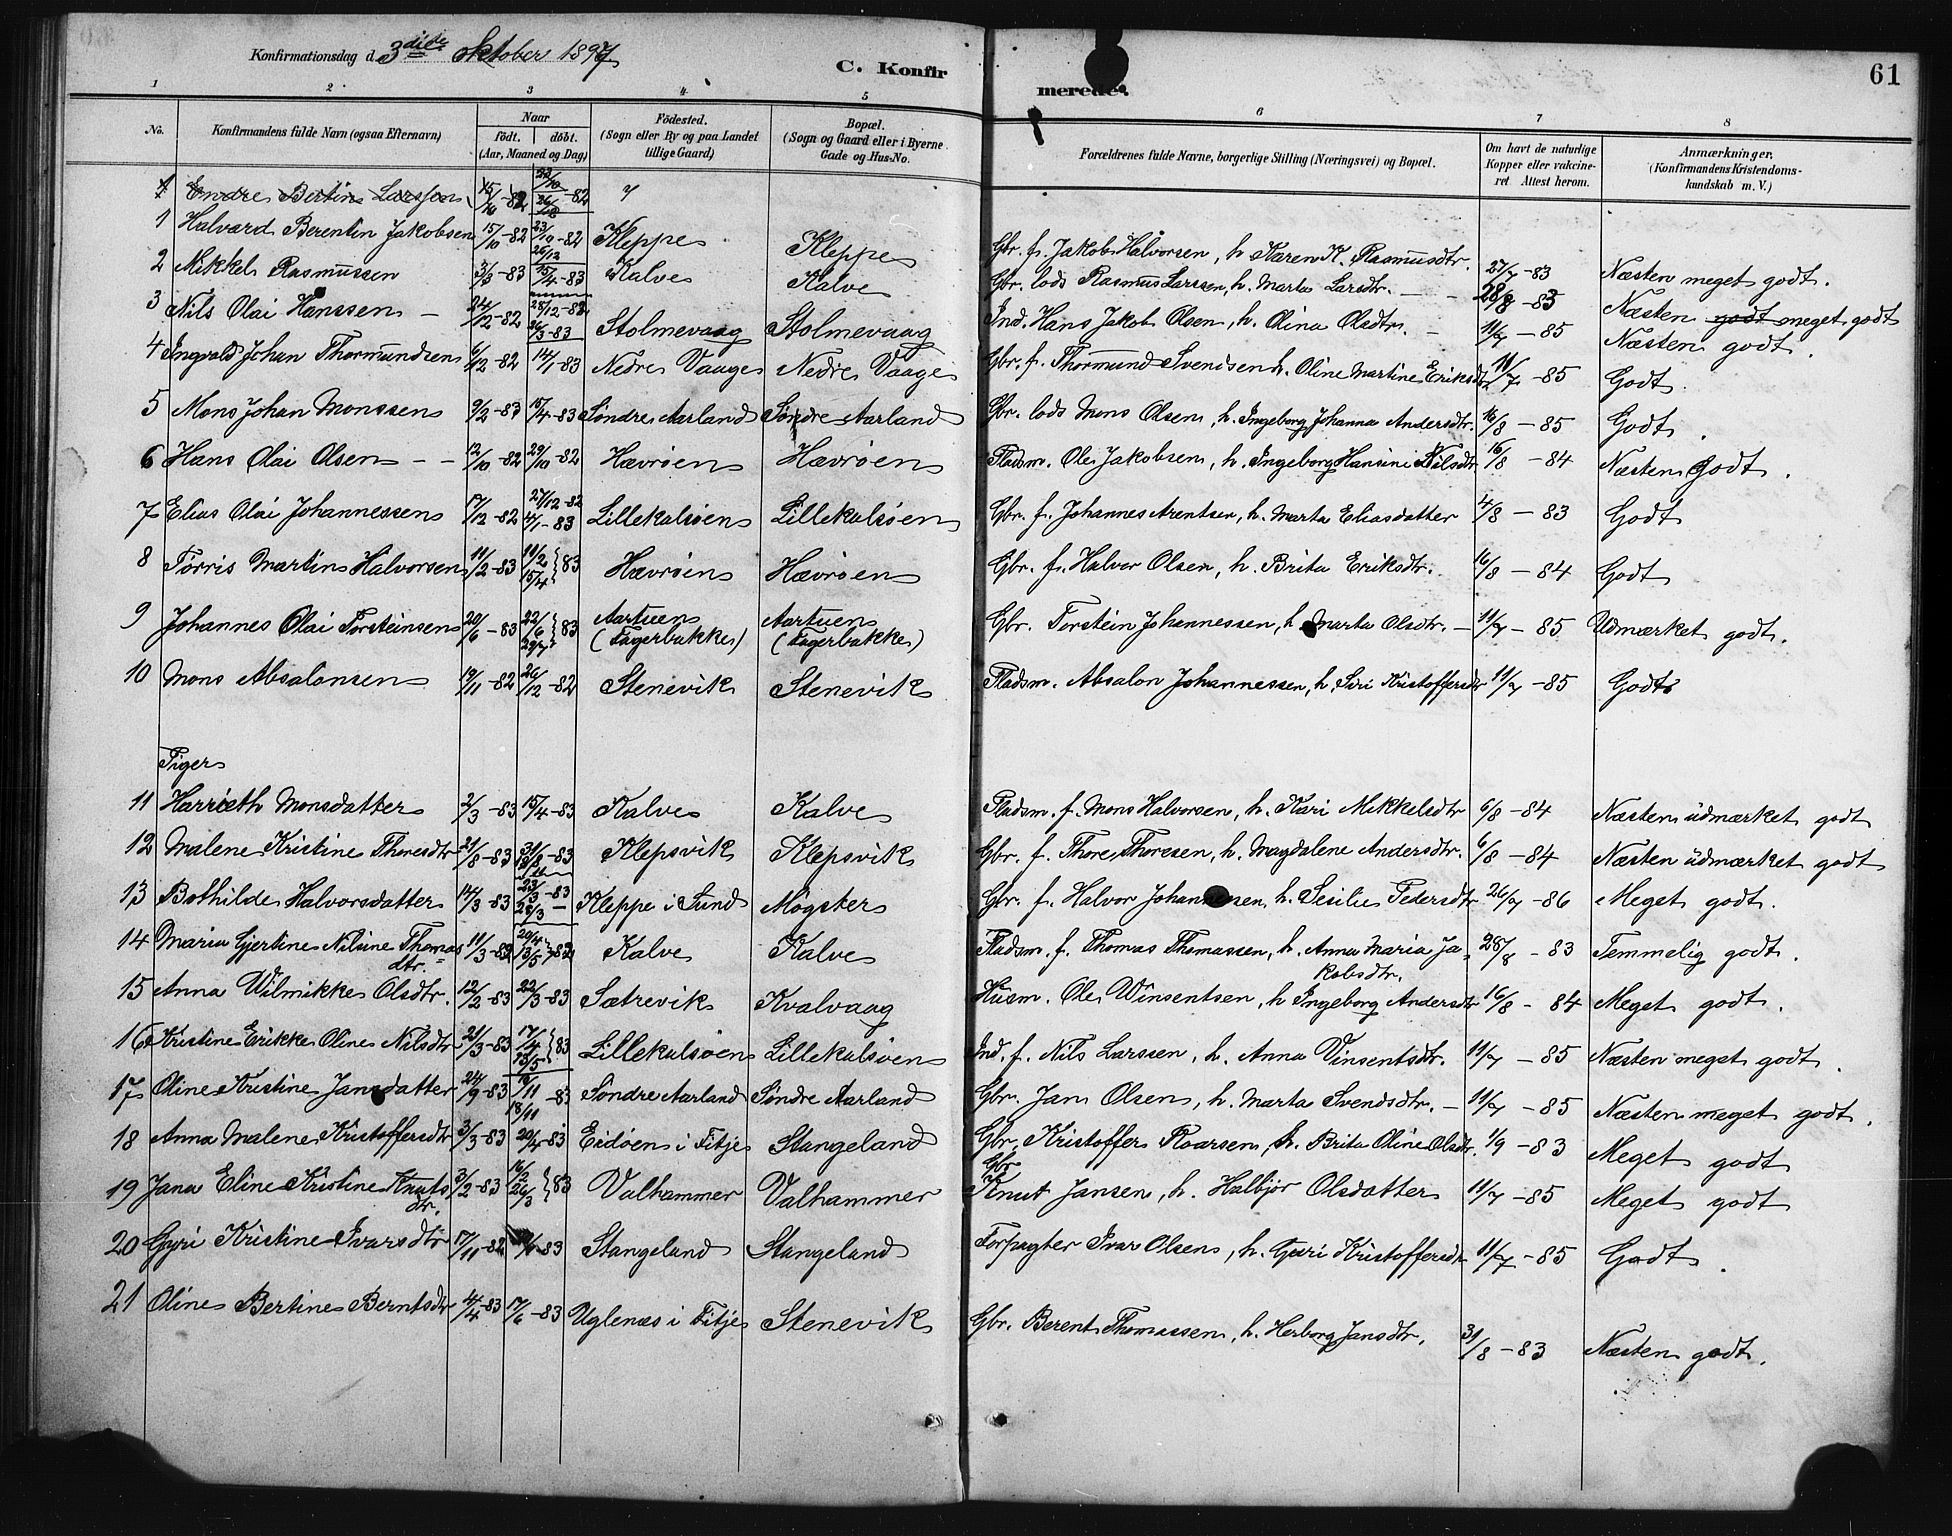 Konfirmationsdag d. 3die Oktober 1897
C. Konfirmerede.
61
1 2 3 4 5 6 7 8
No. | Konfirmandens fulde Navn (ogsaa Efternavn) | Naar födt. döbt. (Aar, Maaned og Dag) | Födested. (Sogn eller By og paa Landet tillige Gaard) | Bopæl. (Sogn og Gaard eller i Byerne Gade og Hus-No. | Forældrenes fulde Navne, borgerlige Stilling (Næringsvei) og Bopæl. | Om havt de naturlige Kopper eller vakcineret Attest herom. | Anmærkninger. (Konfirmandens Kristendomskundskab m. V.)
1 Endre Bertin Larssen 15/10 -82
1 Halvard Berentin Jakobsen 15/10 -82 23/10 -82 26/12 Kleppe Kleppe Gbr. f. Jakob Halvorsen, h. Karen K. Rasmusdtr. 27/7 -83 Næsten meget godt.
2 Mikkel Rasmussen 3/3 -83 15/4 -83 Kalve Kalve Gbr. lods Rasmus Larssen, h. Marta Larsdtr. 28/8 -83 Næsten godt meget godt
3 Nils Olai Hanssen 24/12 -82 25/12 -82 26/3 -83 Stolmevaag Stolmevaag Ind. Hans Jakob Olsen, h. Olina Olsdtr. 11/7 -85 Næsten godt.
4 Ingvald Johan Thormundsen 6/12 -82 14/1 -83 Nedre Vaage Nedre Vaage Gbr. f. Thormund Svendsen h. Oline Martine Eriksdtr. 11/7 -85 Godt.
5 Mons Johan Monssen 9/2 -83 15/4 -83 Søndre Aarland Søndre Aarland Gbr. lods Mons Olsen, h. Ingeborg Johanna Andersdtr. 16/8 -85 Godt.
6 Hans Olai Olsen 12/10 -82 29/10 -82 Hævrøen Hævrøen Pladsm. Ole Jakobsen, h. Ingeborg Hansine Nilsdtr 16/8 -84 Næsten Godt.
7 Elias Olai Johannessen 17/12 -82 27/12 -82 -83 Lillekalsøen Lillekalsøen Gbr. f. Johannes Arentsen, h. Marta Eliasdatter 4/8 -83 Godt
8 Torris Martin Halvorsen 11/2 -83 11/2 15/4 } 83 Hævrøen Hævrøen Gbr. f. Halvor Olsen, h. Brita Eriksdtr. 16/8 -84 Godt
9 Johannes Olai Torsteinsen 20/6 -83 22/6 29/7 } 83 Aartuen (Fagerbakke) Aartuen (Fagerbakke) Gbr. Torstein Johannessen, h. Marta Olsdtr. 11/7 -85 Udmærket godt.
10 Mons Absalonsen 19/11 -82 26/12 -82 Stenevik Stenevik Pladsm. Absalon Johannessen, h. Siri Kristoffersdtr 11/7 -85 Godt
Piger
11 Harrieth Monsdatter 2/3 -83 15/4 -83 Kalve Kalve Pladsm. f. Mons Halvorsen, h. Kari Mikkelsdtr 6/8 -84 Næsten udmærket godt
12 Malene Kristine Thoresdtr 21/8 -83 31/8 -83 Klepsvik Klepsvik Gbr. f. Thore Thoresen, h. Magdalene Andersdtr. 6/8 -84 Næsten udmærket godt
13 Bothilde Halvorsdatter 14/3 -83 23/3 -83 28/3 — Kleppe i Sund Møgster Gbr. f. Halvor Johannesen, h. Sesilie Pedersdtr 26/7 -86 Meget godt.
14 Maria Gjertine Nilsine Thomasdtr. 11/3 -82 20/4 13/5 } 82 Kalve Kalve Pladsm. f. Thomas Thomassen, h. Anna Maria Jakobsdtr. 28/8 -83 Temmelig godt.
15 Anna Wilmikke Olsdtr. 12/2 -83 22/3 -83 Sætrevik Kvalvaag Husm. Ole Winsentsen, h. Ingeborg Andersdtr 16/8 -84 Meget godt.
16 Kristine Erikke Oline Nilsdtr 21/3 -83 17/4 13/5 } 83 Lillekalsøen Lillekalsøen Ind. f. Nils Larssen, h. Anna Vinsentsdtr. 11/7 -85 Næsten meget godt.
17 Oline Kristine Jansdatter 24/9 -83 /11 18/11 -83 Søndre Aarland Søndre Aarland Gbr. Jan Olsen, h. Marta Svendsdtr. 11/7 -85 Næsten meget godt.
18 Anna Malene Kristoffersdtr 3/3 -83 20/4 -83 Eidøen i Fitje Stangeland Gbr. Kristoffer Roarsen, h. Brita Oline Olsdtr. 1/9 -83 Meget godt
19 Jana Eline Kristine Knutsdtr. 3/2 -83 16/2 26/3 } 83 Valhammer Valhammer Gbr. Knut Jansen, h. Halbjør Olsdatter 11/7 -85 Meget godt
20 Gyri Kristine Ivarsdtr 17/11 -82 -83 Stangeland Stangeland Forpagter Ivar Olsen, h. Guri Kristoffersdtr 11/7 -85 Godt.
21 Oline Bertine Berntsdtr 4/4 -83 17/6 -83 Uglenæs i Fitje Stenevik Gbr. Berent Thomassen, h. Herborg Jansdtr. 31/8 -83 Næsten godt.